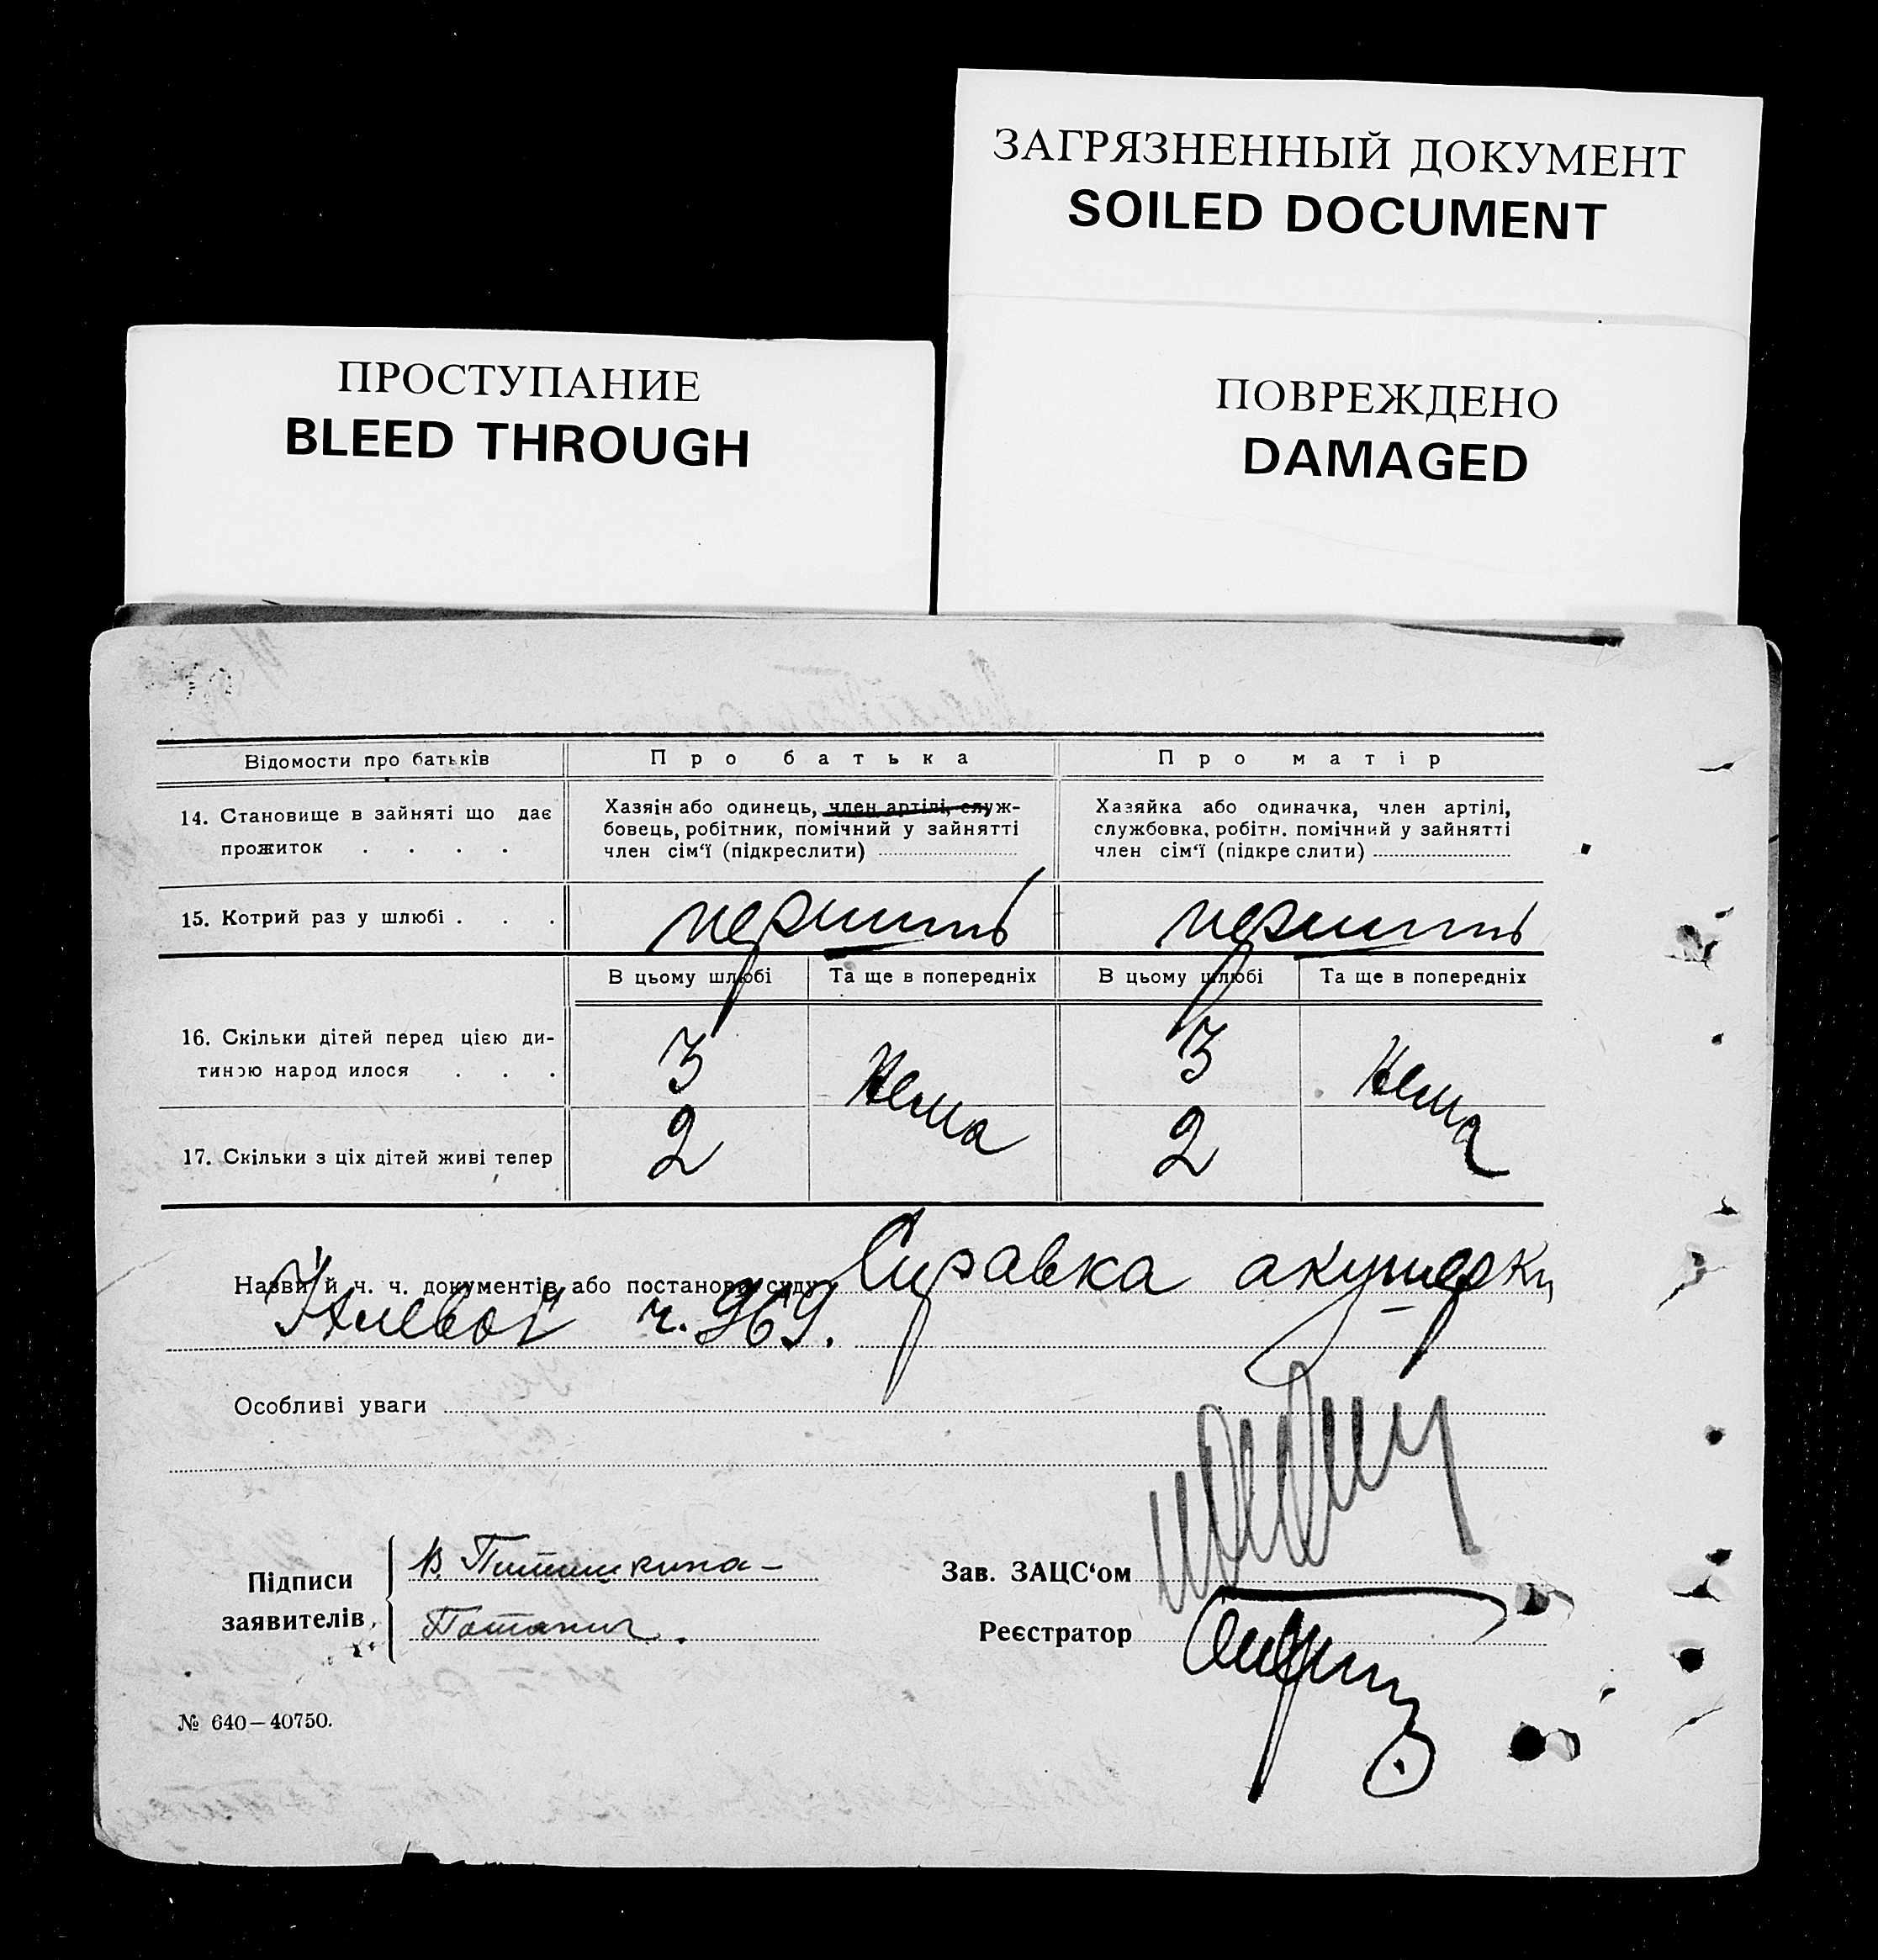 ЗАГРЯЗНЕННЫЙ ДОКУМЕНТ
SOILED DOCUMENT
ПРОСТУПАНИЕ
BLEED THROUGH
ПОВРЕЖДЕНО
DAMAGED
Відомости про батьків
Про батька
Про матір
14. Становище в зайняті що дає
прожиток . . . .
Хазяін або одинець, член артілі, служ-
бовець, робітник, помічний у зайнятті
член сім'ї (підкреслити)
Хазяйка або одиначка, член артілі,
службовка, робітн. помічний у зайнятті
член сім'ї (підкреслити)
15. Котрий раз у шлюбі . . .
перший
перший
В цьому шлюбі
Та ще в попередніх
В цьому шлюбі
Та ще в попередніх
16. Скільки дітей перед цією ди-
тиною народилося . . .
3
Нема
3
Нема
17. Скільки з ціх дітей живі тепер
2
2
Назви й ч. ч. документів або постанови суду Справка акушерки
ч. 969.
Особливі уваги
Підписи
заявителів
В.
Потапич
Зав. ЗАЦС'ом
Реєстратор
№ 640—40750.